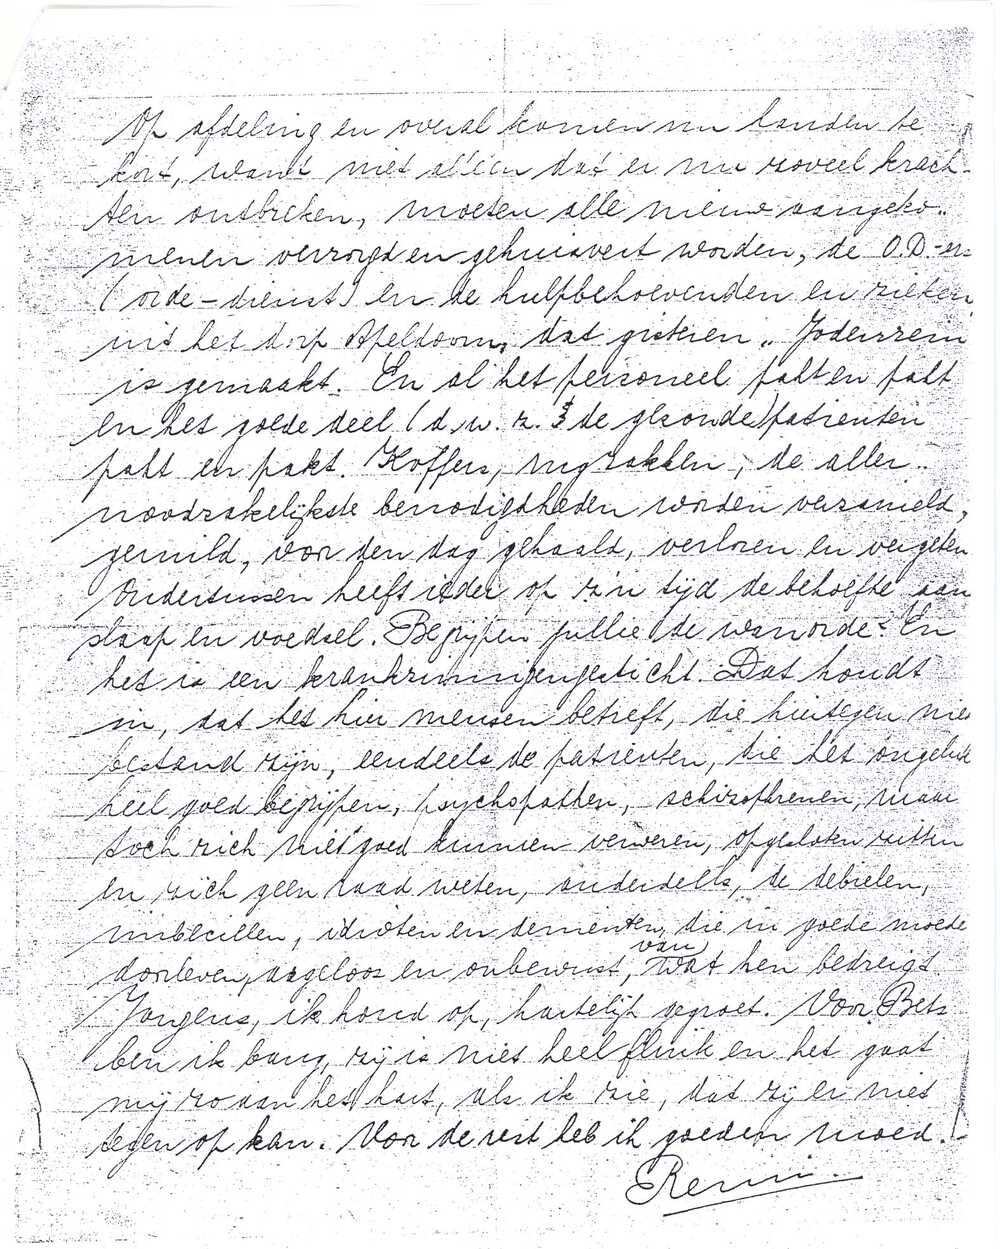 Op afdeling en overal komen nu handen te
kort, want niet alléén dat er nu zoveel krach-
ten ontbreken, moeten alle nieuw aangeko-
menen verzorgd en gehuisvert worden, de O.D.-ers
(orde-dienst) en de hulpbehoevenden en zieken
uit het dorp Apeldoorn, dat gisteren „Jodenrein
is gemaakt. En al het personeel pakt en pakt
en het goede deel (d.w.z. de gezonde) patienten
pakt en pakt. Koffers, rugzakken, de aller-
noodzakelijkste benodigdheden worden verzameld,
geruild, voor den dag gehaald, verloren en vergeten
Ondertussen heeft ieder op zijn tijd de behoefte aan
slaap en voedsel. Begrijpen jullie de wanorde? En
het is een krankzinnigengesticht. Dat houdt
in, dat het hier mensen betreft, die hiertegen niet
bestand zijn, eendeels de patiënten, die het ongeluk
heel goed begrijpen, psychopathen, schizofrenen, maar
toch zich niet goed kunnen verweren, opgesloten zitten
en zich geen raad weten, anderdeels, de debielen,
imbecillen, idioten en dementen, die in goede moede
doorleven, argeloos en onbewust, van wat hen bedreigt
Jongens, ik houd op, hartelijk gegroet. Voor Bets
ben ik bang, zij is niet heel flink en het gaat
mij zo aan het hart, als ik zie, dat zij er niet
tegen op kan. Voor de rest heb ik goeden moed.